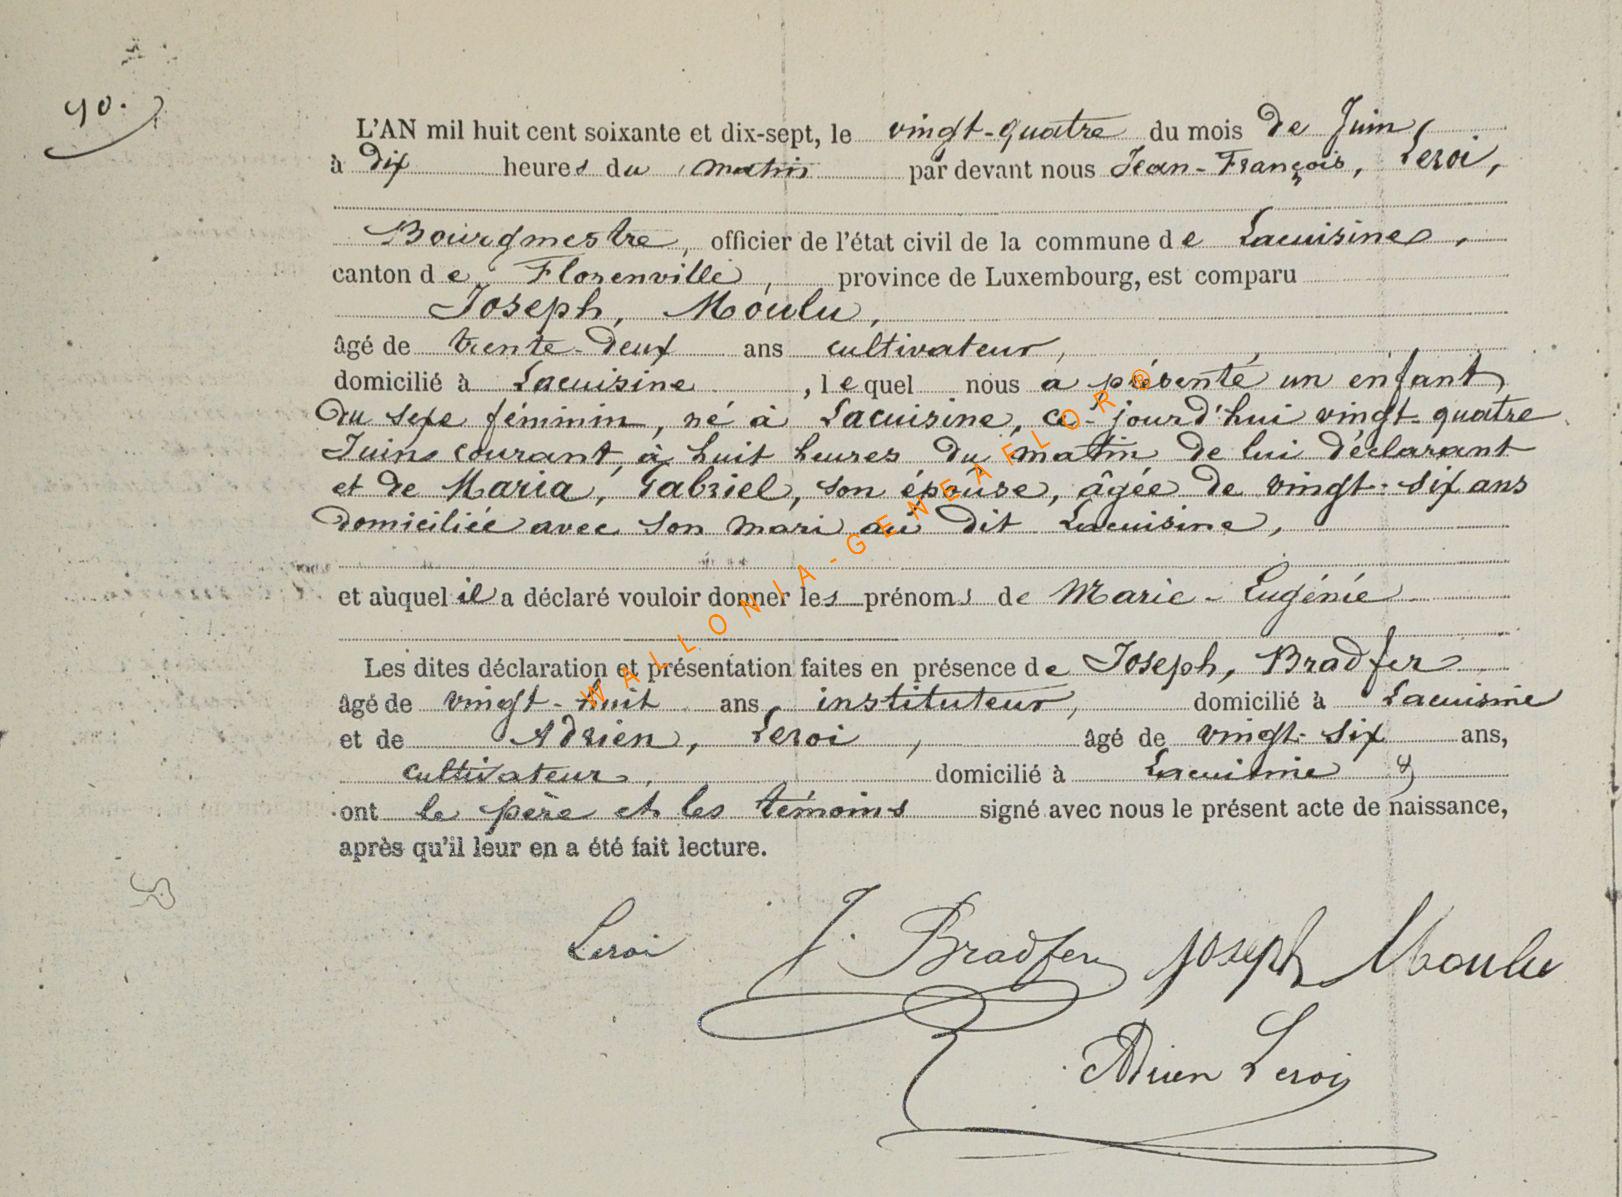 10.
L'AN mil huit cent soixante et dix-sept, le vingt-quatre du mois de Juin
à dix heures du matin par devant nous Jean-François, Leroi,
Bourgmestre, officier de l'état civil de la commune de Lacuisine,
canton de Florenville, province de Luxembourg, est comparu
Joseph, Moulu,
âgé de trente-deux ans cultivateur,
domicilié à Lacuisine, lequel nous a présenté un enfant
du sexe féminin, né à Lacuisine, ce jourd'hui vingt-quatre
Juin courant, à huit heures du matin de lui déclarant
et de Maria, Gabriel, son épouse, âgée de vingt-six ans
domiciliée avec son mari au dit Lacuisine,
et auquel il a déclaré vouloir donner les prénoms de Marie-Eugénie
Les dites déclaration et présentation faites en présence de Joseph, Bradfer
âgé de vingt-huit ans instituteur, domicilié à Lacuisine
et de Adrien, Leroi, âgé de vingt-six ans,
cultivateur, domicilié à Lacuisine &
ont le père et les témoins signé avec nous le présent acte de naissance,
après qu'il leur en a été fait lecture.
Leroi J. Bradfer Joseph Moulu
Adrien Leroy
WALLONIA-GENEAFLOR®